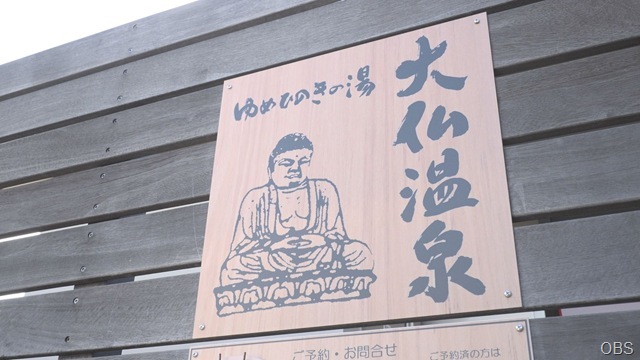 大仏温泉
ゆめひのきの湯
ご予約・お問合せ
ご予約済の方は
OBS